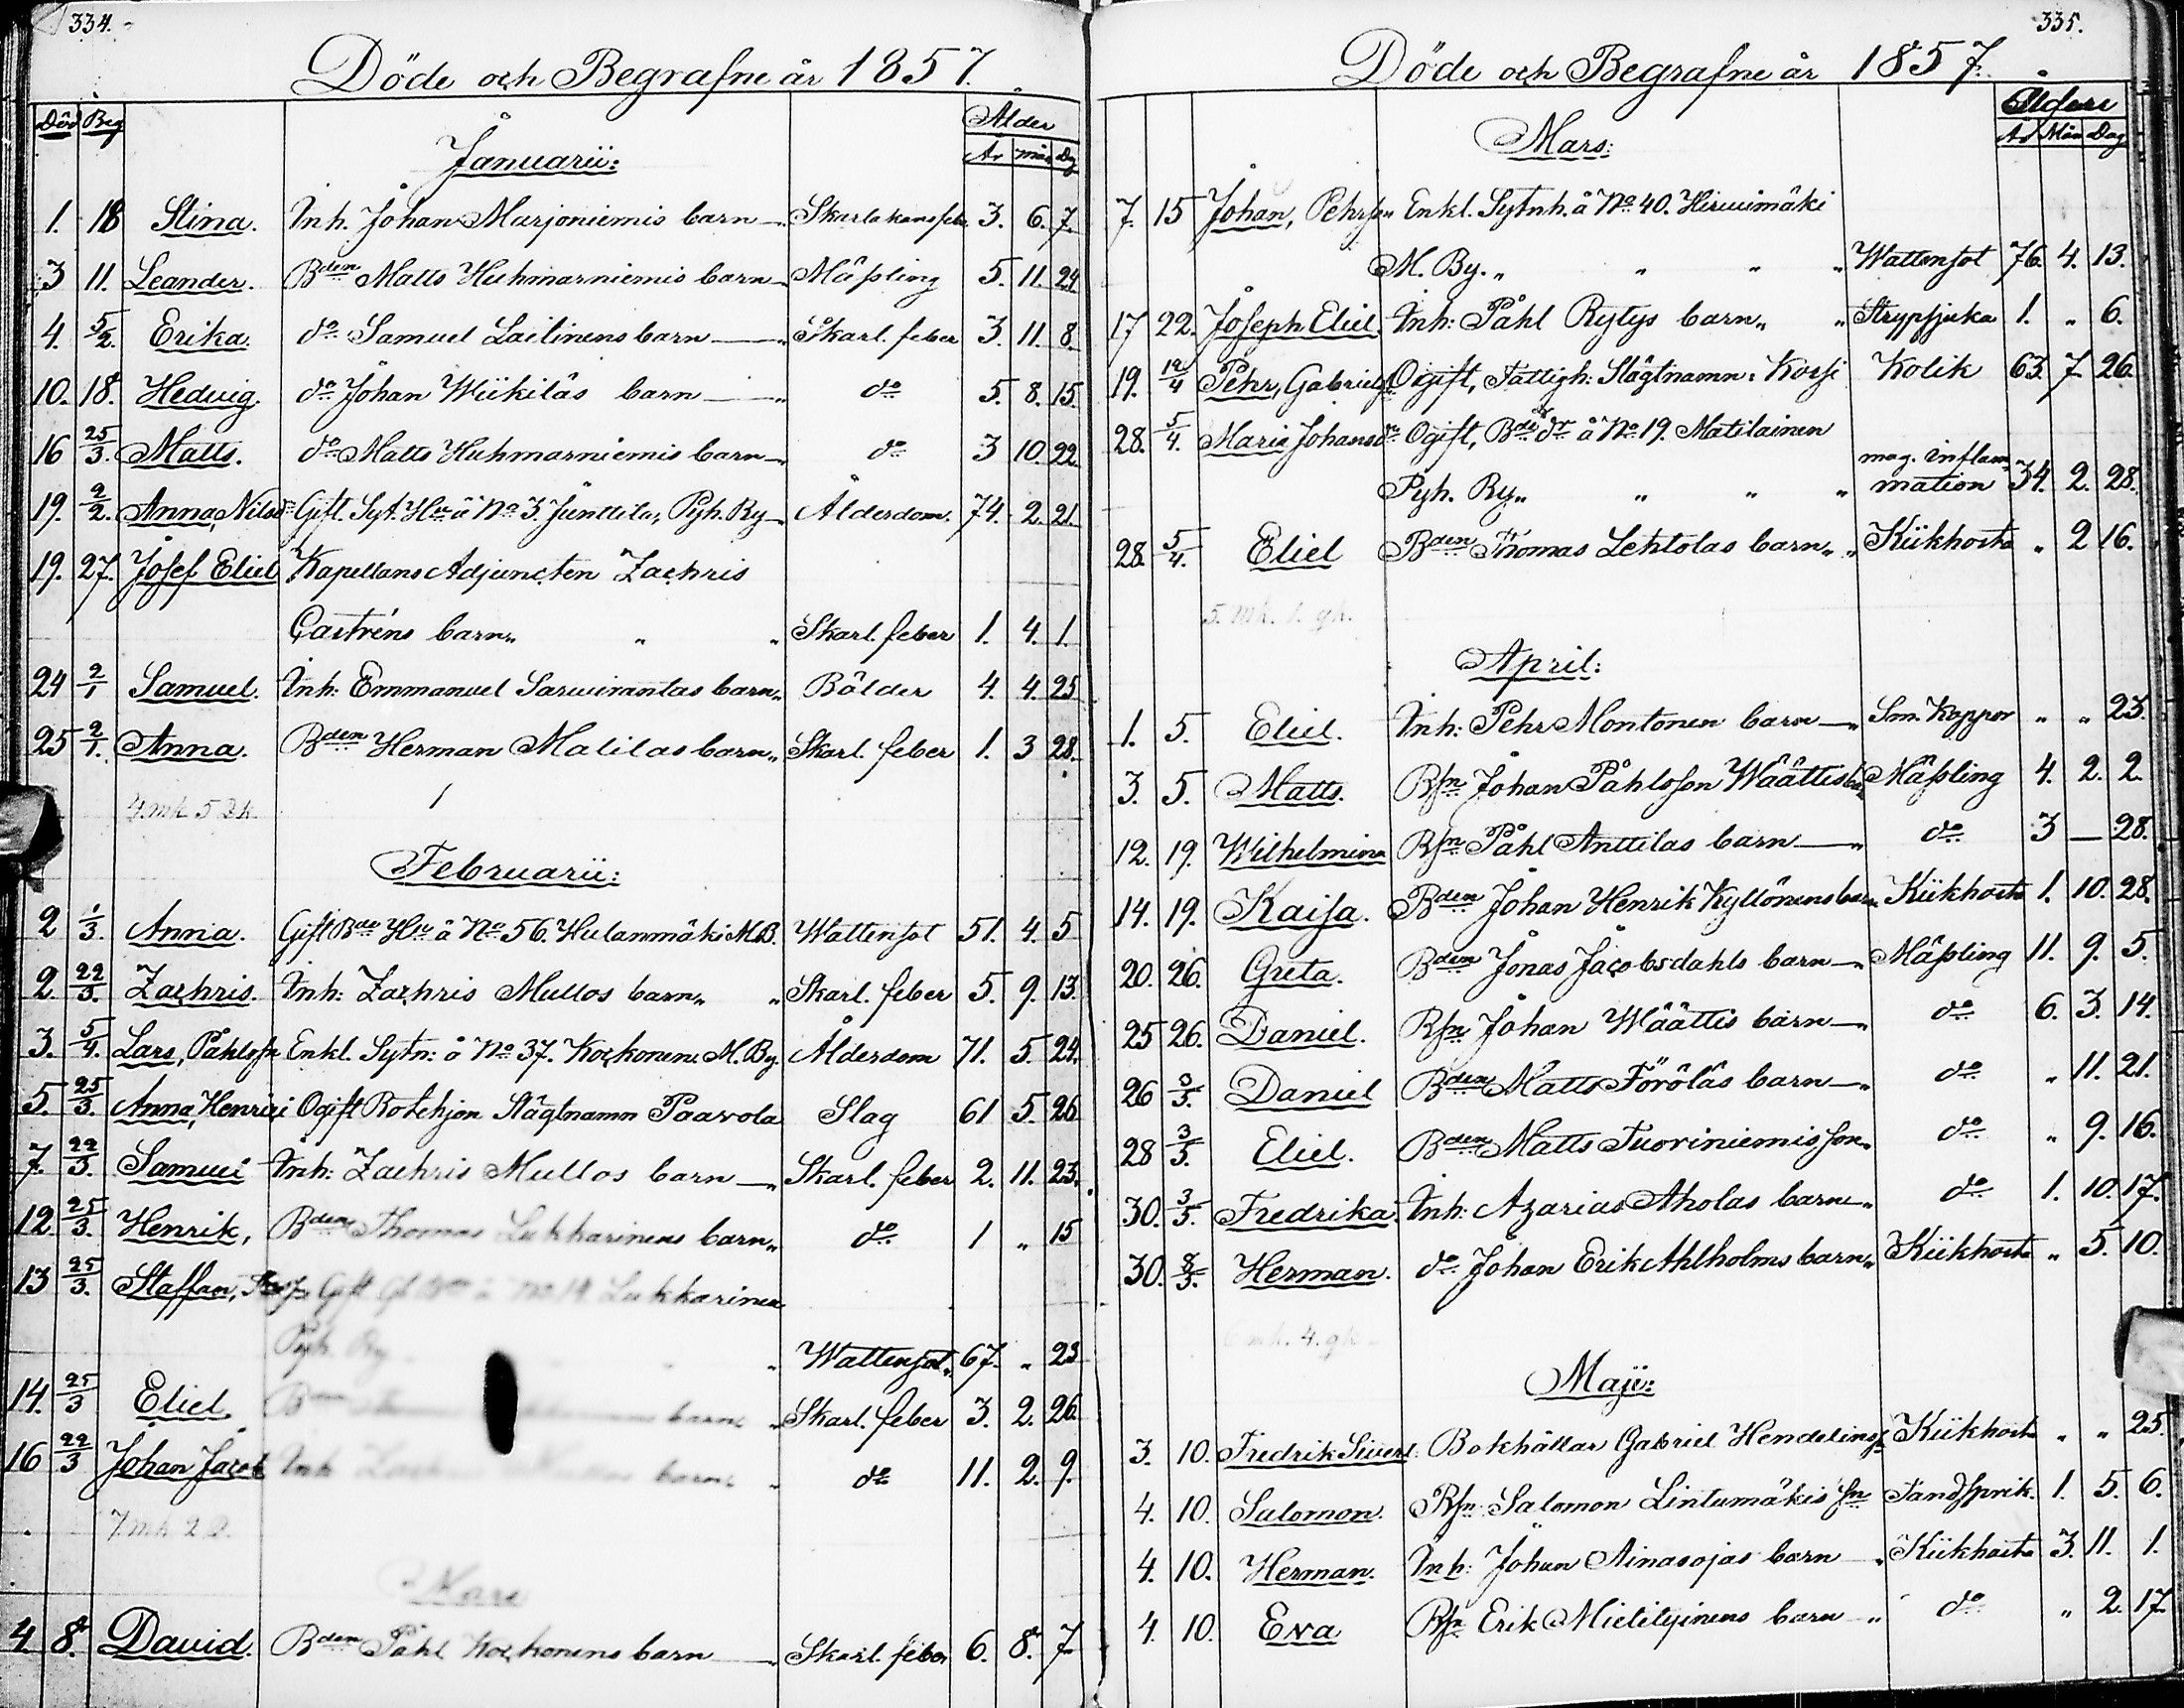 334.
Döde och Begrafne år 1857.
Död Beg Ålder
År mån Dag
Januarii:
1. 18 Stina. Inh. Johan Marjoniemis barn Skarlakansfeb. 3. 6. 7.
3 11. Leander. Bden Matts Huhmarniemis barn Mässling 5. 11. 24
4. 5/2. Erika. do Samuel Lailinens barn Skarl. feber 3. 11. 8.
10. 18. Hedvig. do Johan Wiikiläs barn do 5. 8. 15.
16 25/3. Matts. do Matts Huhmarniemis barn do 3 10. 22
19. 2/2. Anna, Nilsdr Gift. Syt. Hu å No 3. Junttila, Pyh. By Ålderdom. 74. 2. 21.
19. 27. Josef Eliel Kapellans Adjuncten Zachris
Castréns barn „ „ „ Skarl. feber 1. 4. 1.
24 2/1 Samuel. Inh: Emmanuel Sarwirantas barn „ Bölder 4. 4. 25
25 2/1. Anna. Bden Herman Matilas barn „ Skarl. feber 1. 3 28.
4 mk 5 Qk.
Februarii:
2 1/3. Anna. Gift Bde Hu å No 56. Hulanmäki M.B. Wattensot 51. 4. 5
2. 22/3. Zachris. Inh: Zachris Mullos barn „ „ Skarl. feber 5. 9. 13.
3. 5/4. Lars, Påhlsson Enkl. Sytn: å No 37. Kockonen M. By. Ålderdom 71. 5. 24.
5. 25/3. Anna, Henrici Ogift Rotehjon Slägtnamn Paavola Slag 61 5. 26
7. 22/3. Samuel Inh: Zachris Mullos barn Skarl. feber 2. 11. 23.
12. 25/3. Henrik, Bden Thomas Lukkarinens barn „ do 1 „ 15
13 25/3. Staffan, Gift å No 19. Lukkarinen
Pyh. By „ Wattensot. 67. „ 23
14. 25/3 Eliel Bden barn „ Skarl. feber 3. 2. 26.
16 22/3 Johan Jacob Inh Zachris Mullos barn „ do 11. 2. 9.
7 mk 2 Q.
Mars
4. 8. David. Bden Påhl Kockonens barn Skarl. feber 6. 8. 7
335.
Döde och Begrafne år 1857.
Ålder
År Mån Dag
Mars:
7. 15 Johan, Pehrson Enkl. Sytnh. å No 40. Hirwimäki
M. By. „ „ „ „ Wattensot 76. 4. 13.
17 22. Joseph Eliel. Inh: Påhl Rytys barn „ „ Strypsjuka 1. „ 6.
19. 12/4 Pehr, Gabrielsn Ogift, Fattigh: Slägtnamn: Korsi Kolik 63. 7. 26.
28. 5/4. Maria Johansdr Ogift, Bde dr å No 19. Matilainen
Pyh. By. „ „ „ „ mag. inflammation 34. 2. 28.
28. 5/4. Eliel Bden Thomas Lehtolas barn „ „ Kikhosta „ 2 16.
5. mk. 1. qk.
April:
1. 5. Eliel. Inh: Pehr Montonen barn Sm. Koppor „ „ 23.
3. 5. Matts. Bsn Johan Påhlsson Wäättis barn Mässling 4. 2. 2.
12. 19. Wilhelmina Bsn Påhl Anttilas barn do 3 — 28.
14. 19. Kaisa. Bden Johan Henrik Kyllönens barn Kikhosta 1. 10. 28.
20. 26. Greta. Bden Jonas Jacobsdahls barn Mässling 11. 9. 5.
25 26. Daniel. Bsn Johan Wäättis barn do 6. 3. 14.
26 3/5. Daniel Bden Matts Töröläs barn do „ 11. 21.
28 3/5. Eliel. Bden Matts Tuoriniemis son „ do „ 9. 16.
30. 3/5. Fredrika. Inh: Azarias Aholas barn „ do 1. 10. 17.
30. 3/5. Herman. do Johan Erik Ahlholms barn „ Kikhosta „ 5. 10.
6 mk. 4. qk
Maji:
3. 10. Fredrik Sivert. Bokhållar Gabriel Hendelins Kikhosta „ „ 25.
4. 10. Salomon. Bsn: Salomon Lintumäkis sn Tandsprick. 1. 5. 6.
4. 10. Herman. Inh: Johan Ainasojas barn Kikhosta 3. 11. 1.
4. 10. Eva Bsn Erik Mielityinens barn „ do „ 2. 17